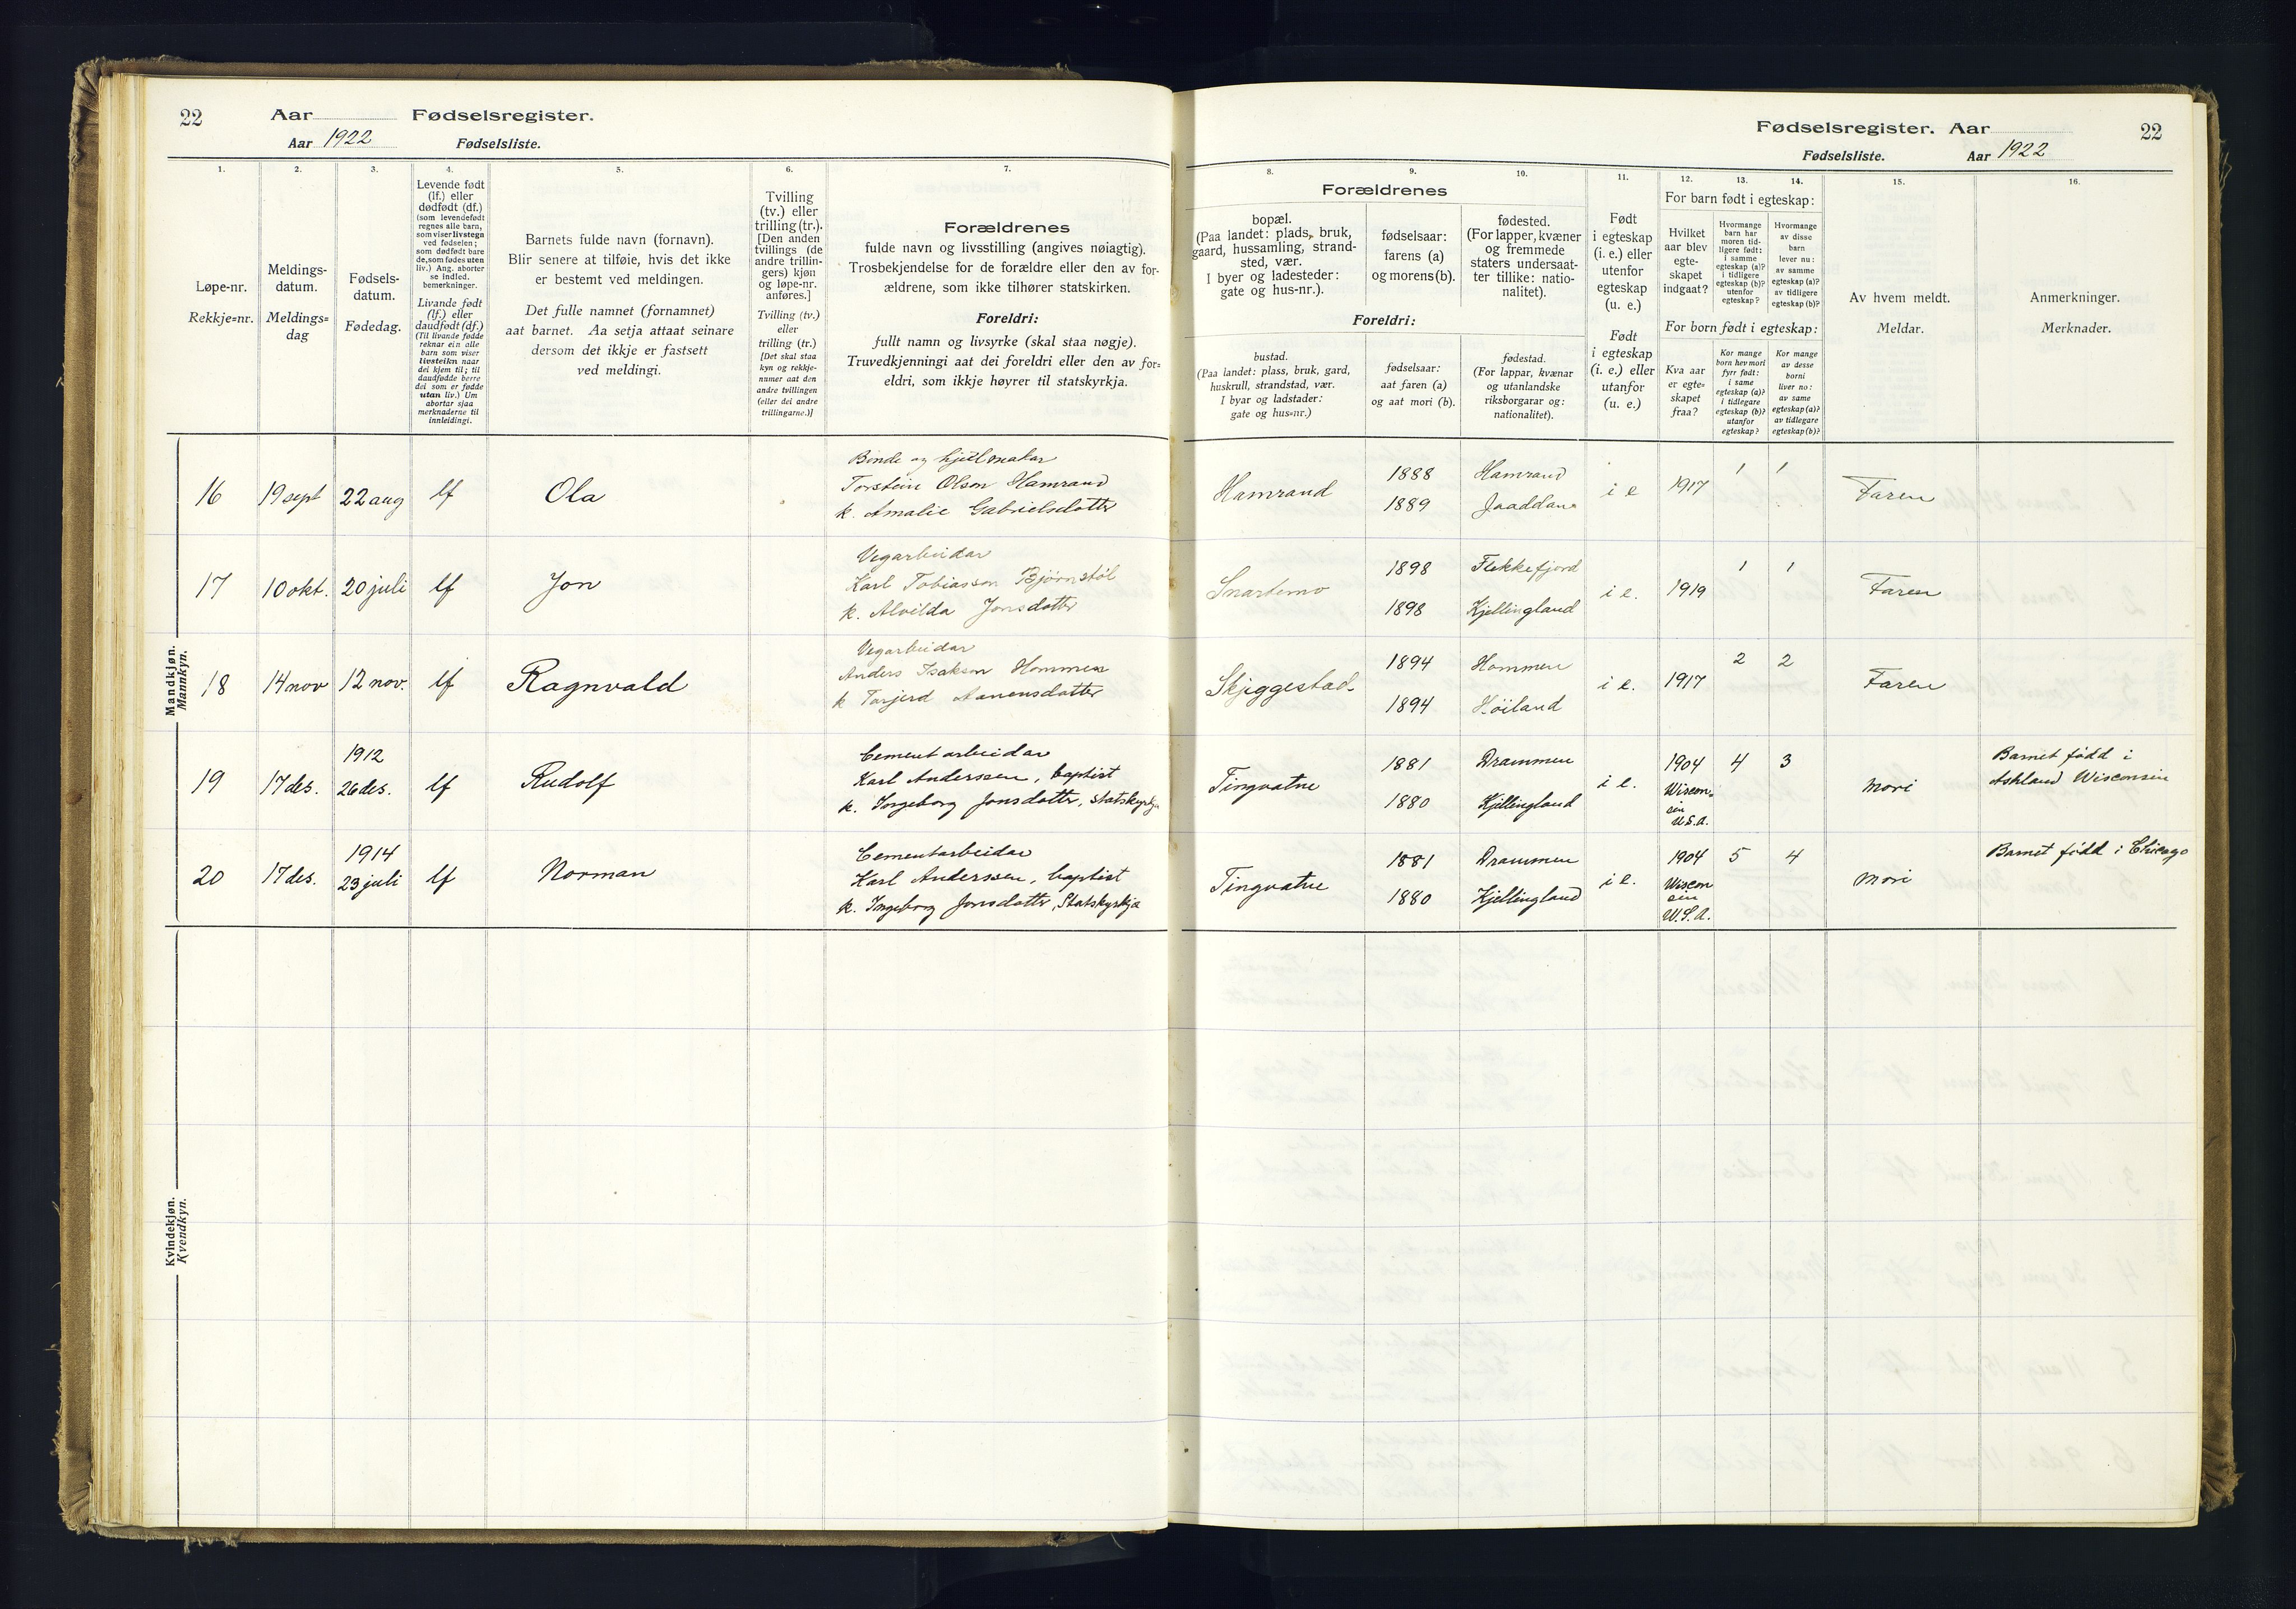 22
Aar
Fødselsregister.
Aar 1922
Fødselsliste.
1.
2.
3.
4.
5.
6.
7.
Løpe-nr.
Rekkje=nr.
Meldings-
datum.
Meldings=
dag
Fødsels-
datum.
Fødedag.
Levende født
(lf.) eller
dødfødt (df.)
(som levendefødt
regnes alle barn,
som viser livstegn
ved fødselen;
som dødfødt bare
de, som fødes uten
liv.) Ang. aborter
se indled.
bemerkninger.
Livande født
(lf.) eller
daudfødt (df.)
(Til livande fødde
reknar ein alle
barn som viser
livsteikn naar
dei kjem til; til
daudfødde berre
dei som er fødde
utan liv.) Um
abortar sjaa
merknaderne til
innleidingi.
Barnets fulde navn (fornavn).
Blir senere at tilføie, hvis det ikke
er bestemt ved meldingen.
Det fulle namnet (fornamnet)
aat barnet. Aa setja attaat seinare
dersom det ikkje er fastsett
ved meldingi.
Tvilling
(tv.) eller
trilling (tr.).
[Den anden
tvillings (de
andre trillin-
gers) kjøn
og løpe-nr.
anføres.]
Tvilling (tv.)
eller
trilling (tr.)
[Det skal staa
kyn og rekkje-
numer aat den
andre tvillingen
(eller dei andre
trillingarne.)]
Forældrenes
fulde navn og livsstilling (angives nøiagtig).
Trosbekjendelse for de forældre eller den av for-
ældrene, som ikke tilhører statskirken.
Foreldri:
fullt namn og livsyrke (skal staa nøgje).
Truvedkjenningi aat dei foreldri eller den av for=
eldri, som ikkje høyrer til statskyrkja.
Mandkjøn.
Mannkyn.
16
19 sept
22 aug
lf
Ola
Bonde og hjulmakar
Torstein Olson Hamrand
k. Amalie Gabrielsdotter
17
10 okt.
20 juli
lf
Jon
Vegarbeidar
Karl Tobiasson Bjørnstøl
k. Alvilda Jonsdotter
18
14 nov
12 nov.
lf
Ragnvald
Vegarbeidar
Anders Isakson Hommen
k Torjerd Aanensdotter
19
17 des.
1912
26 des.
lf
Rudolf
Cementarbeidar
Karl Anderssen, baptist
k. Ingeborg Jonsdotter, statskyrkja
20
17 des.
1914
23 juli
lf
Norman
Cementarbeidar
Karl Anderssen, baptist
k. Ingeborg Jonsdotter, Statskyrkja
Kvindekjøn.
Kvendkyn.
Fødselsregister. Aar
22
Fødselsliste.
Aar 1922
8.
9.
10.
11.
12.
13.
14.
15.
16.
Forældrenes
bopæl.
(Paa landet: plads, bruk,
gaard, hussamling, strand-
sted, vær.
I byer og ladesteder:
gate og hus-nr.).
fødselsaar:
farens (a)
og morens (b).
fødested.
(For lapper, kvæner
og fremmede
staters undersaat-
ter tillike: natio-
nalitet).
Foreldri:
bustad.
(Paa landet: plass, bruk, gard,
huskrull, strandstad, vær.
I byar og ladstader:
gate og hus=nr.)
fødselsaar:
aat faren (a)
og aat mori (b).
fødestad.
(For lappar, kvænar
og utanlandske
riksborgarar og:
nationalitet).
Født
i egteskap
(i. e.) eller
utenfor
egteskap
(u. e.)
Født
i egteskap
(i. e.) eller
utanfor
(u. e.)
For barn født i egteskap:
Hvilket
aar blev
egte-
skapet
indgaat?
Hvormange
barn har
moren tid-
ligere født:
i samme
egteskap (a)?
i tidligere
egteskap (b)?
utenfor
egteskap?
Hvormange
av disse
barn
lever nu:
av samme
egteskap (a)?
av tidligere
egteskap (b)?
For born født i egteskap:
Kva aar
er egte=
skapet
fraa?
Kor mange
born hev mori
fyrr født:
i same
egteskap (a)?
i tidlegare
egteskap (b)?
utanfor
egteskap?
Kor mange
av desse
borni
liver no:
av same
egteskap (a)?
av tidlegare
egteskap (b)?
Av hvem meldt.
Meldar.
Anmerkninger.
Merknader.
Hamrand
1888
1889
Hamrand
i e
1917
1
1
Faren
Snartemo
1898
1898
Flekkefjord
Kjellingland
i e.
1919
1
1
Faren
Skjeggestad
1894
1894
Hommen
Høiland
i e.
1917
2
2
Faren
Tingvatne
1881
1880
Drammen
Kjellingland
i e.
1904
Wiscon-
sin
U.S.A.
4
3
Mori
Barnet fødd i
Ashland Wisconsin
Tingvatne
1881
1880
Drammen
Kjellingland
i e.
1904
Wiscon
sin
U.S.A.
5
4
Mori
Barnet fødd i Chicago